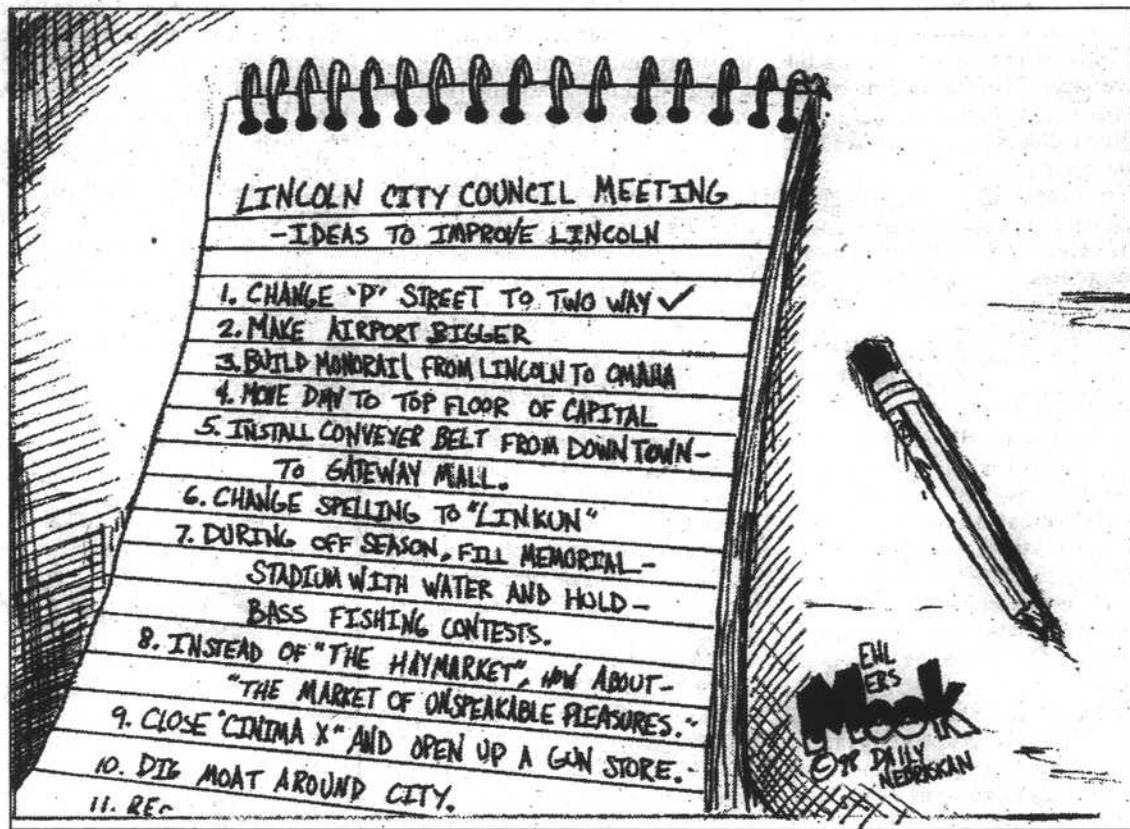 LINCOLN CITY COUNCIL MEETING
-IDEAS TO IMPROVE LINCOLN
1. CHANGE "P" STREET TO TWO WAY ✓
2. MAKE AIRPORT BIGGER
3. BUILD MONORAIL FROM LINCOLN TO OMAHA
4. MOVE DMV TO TOP FLOOR OF CAPITAL
5. INSTALL CONVEYER BELT FROM DOWNTOWN-
TO GATEWAY MALL.
6. CHANGE SPELLING TO "LINKUN"
7. DURING OFF SEASON, FILL MEMORIAL-
STADIUM WITH WATER AND HOLD-
BASS FISHING CONTESTS.
8. INSTEAD OF "THE HAYMARKET", HOW ABOUT-
"THE MARKET OF UNSPEAKABLE PLEASURES."
9. CLOSE "CINIMA X" AND OPEN UP A GUN STORE.
10. DIG MOAT AROUND CITY.
11.
EHL
ERS
Mook
©98 DAILY
NEBRASKAN